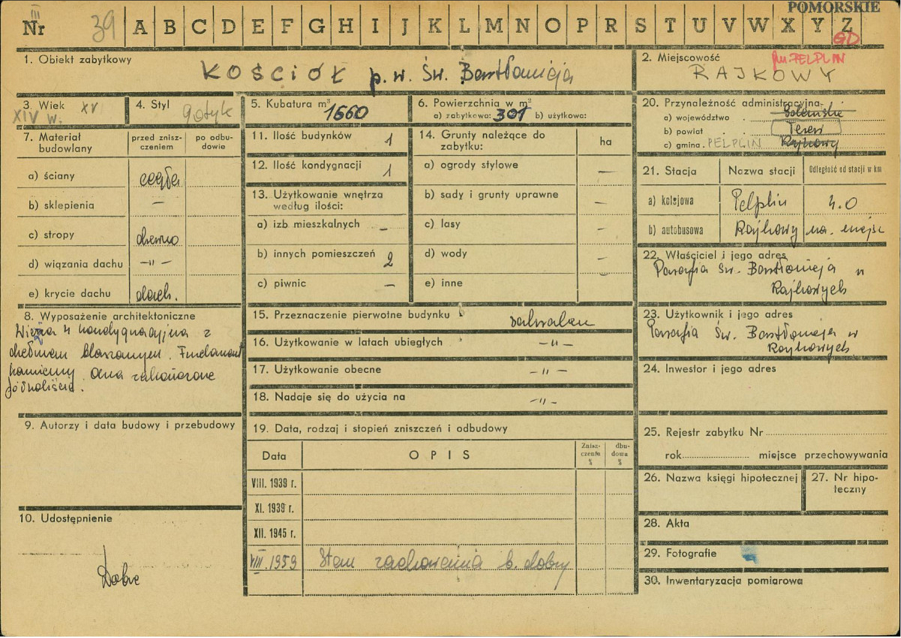 POMORSKIE
III
Nr 39 A B C D E F G H I J K L M N O P R S T U V W X Y Z
GD
1. Obiekt zabytkowy
KOŚCIÓŁ p.w. Św. Bartłomieja
2. Miejscowość
RAJKOWY
PELPLIN
3. Wiek XV
XIV w.
4. Styl gotyk
5. Kubatura m³
1660
6. Powierzchnia w m²
a) zabytkowa: 301 b) użytkowa:
7. Materiał budowlany
przed zniszczeniem
po odbudowie
a) ściany cegła
b) sklepienia —
c) stropy drewno
d) wiązania dachu —"—
e) krycie dachu dach.
8. Wyposażenie architektoniczne
Wieża 4 kondygnacyjna z
hełmem blaszanym. Fundament
kamienny. Okna zakończone
półkoliście.
9. Autorzy i data budowy i przebudowy
10. Udostępnienie
Dobre
11. Ilość budynków 1
12. Ilość kondygnacji 1
13. Użytkowanie wnętrza
według ilości:
a) izb mieszkalnych –
b) innych pomieszczeń 2
c) piwnic –
14. Grunty należące do
zabytku:
ha
a) ogrody stylowe —
b) sady i grunty uprawne —
c) lasy —
d) wody —
e) inne
15. Przeznaczenie pierwotne budynku sakralne
16. Użytkowanie w latach ubiegłych —"—
17. Użytkowanie obecne —"—
18. Nadaje się do użycia na —"—
19. Data, rodzaj i stopień zniszczeń i odbudowy
Data
OPIS
Zniszczenia %
dbudowa %
VIII. 1939 r.
XI. 1939 r.
XII. 1945 r.
VIII. 1959 Stan zachowania b. dobry
20. Przynależność administracyjna
a) województwo Gdańskie
b) powiat Tczew
c) gmina PELPLIN Rajkowy
21. Stacja
Nazwa stacji
Odległość od stacji w km
a) kolejowa Pelplin 4.0
b) autobusowa Rajkowy na miejsc
22. Właściciel i jego adres
Parafia Św. Bartłomieja w
Rajkowych
23. Użytkownik i jego adres
Parafia Św. Bartłomieja w
Rajkowych
24. Inwestor i jego adres
25. Rejestr zabytku Nr
rok miejsce przechowywania
26. Nazwa księgi hipotecznej
27. Nr hipoteczny
28. Akta
29. Fotografie
30. Inwentaryzacja pomiarowa